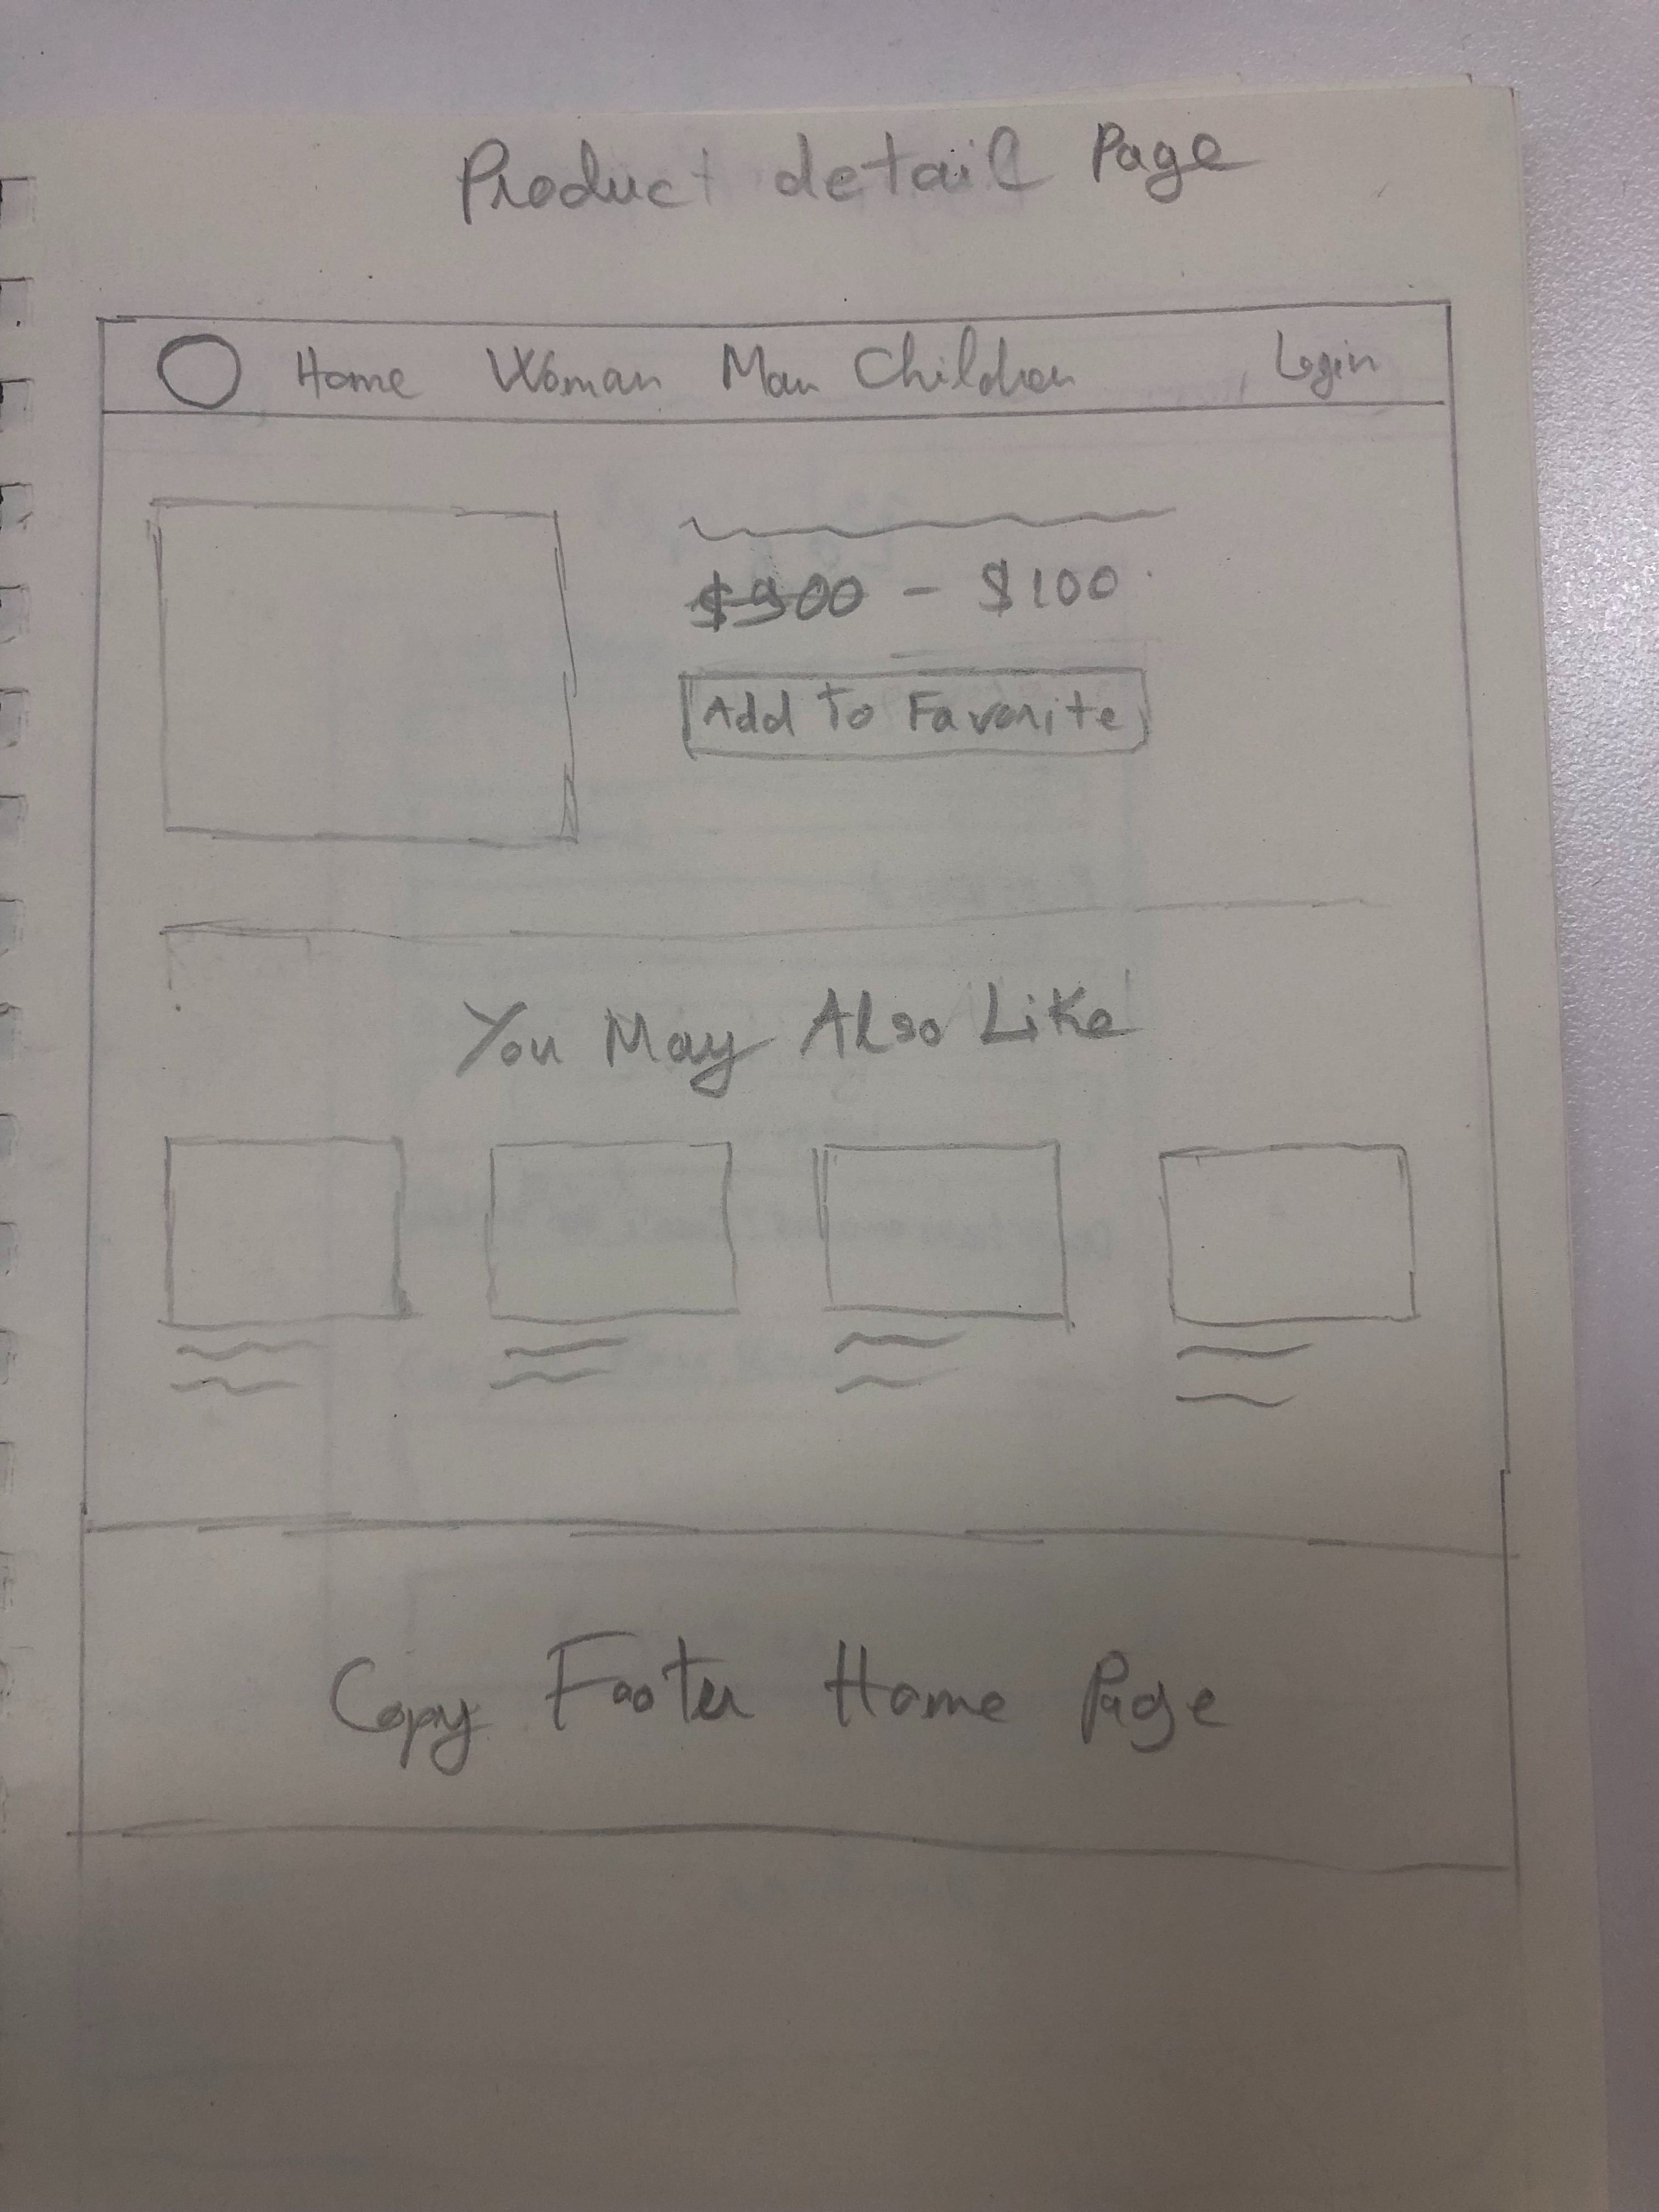 Product detail Page
Home Woman Man Children Login
- $100
Add To Favorite
You May Also Like
Copy Footer Home Page